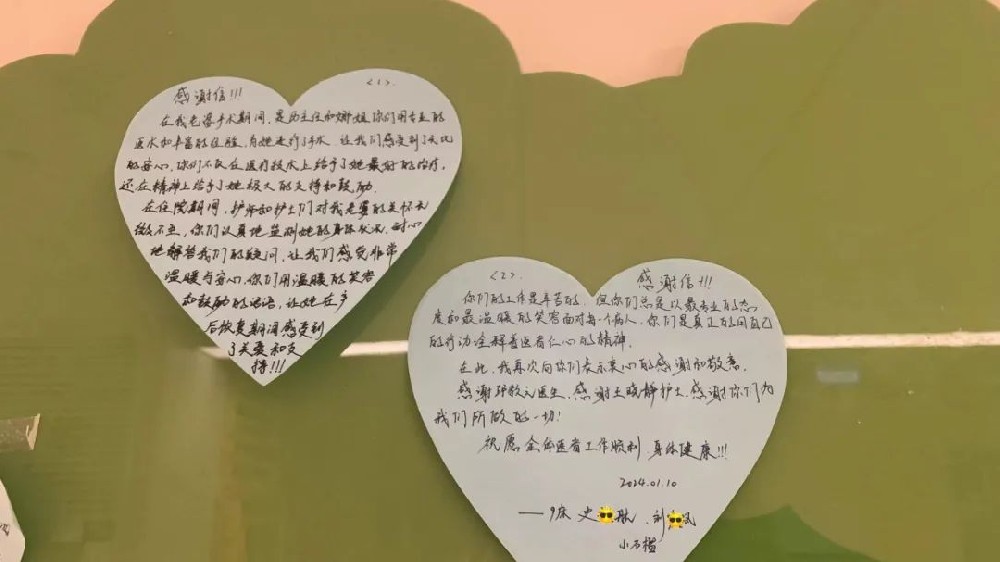 感谢信!!!
<1>.
在我老婆手术期间,是主任和娜姐你们用专业的
医术和丰富的经验,为她进行了手术.让我们感受到了无比
的安心,你们不仅在医疗技术上给予了她最好的治疗,
还在精神上给予了她极大的支持和鼓励.
在住院期间,护师和护士们对我老婆的关怀无
微不至,你们认真地监测她的身体状况,耐心
地解答我们的疑问,让我们感受非常
温暖与安心.你们用温暖的笑容
和鼓励的话语,让她在产
后恢复期间感受到
了关爱和支
持!!!
<2>.
感谢信!!!
你们的工作是辛苦的,但你们总是以最专业的态
度和最温暖的笑容面对每一个病人.你们是真正的用自己
的行动诠释着医者仁心的精神.
在此,我再次向你们表示衷心的感谢和敬意.
感谢医生,感谢王晓静护士.感谢你们为
我们所做的一切!
祝愿全体医者工作顺利 身体健康!!!
2024.01.10
——9床 史 航 .刘 凤
小石榴